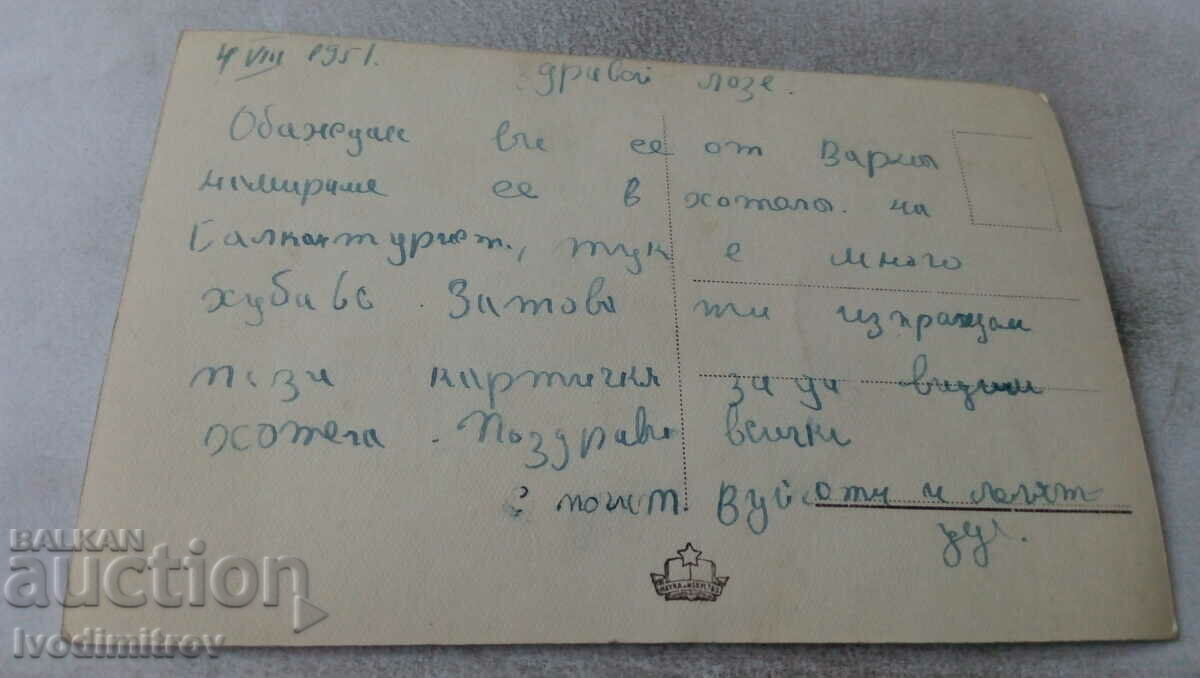 4 VIII 1951.
здравей лозе.
Обаждам ви се от Варна
намираме се в хотела на
Балкантурист, тук е много
хубаво. Затова ти изпращам
тази картичка за да видиш
хотела. Поздрави всички
с почит Вуйчоти и
НАУКА И ИЗКУСТВО
BALKAN
auction
Ivodimitrov